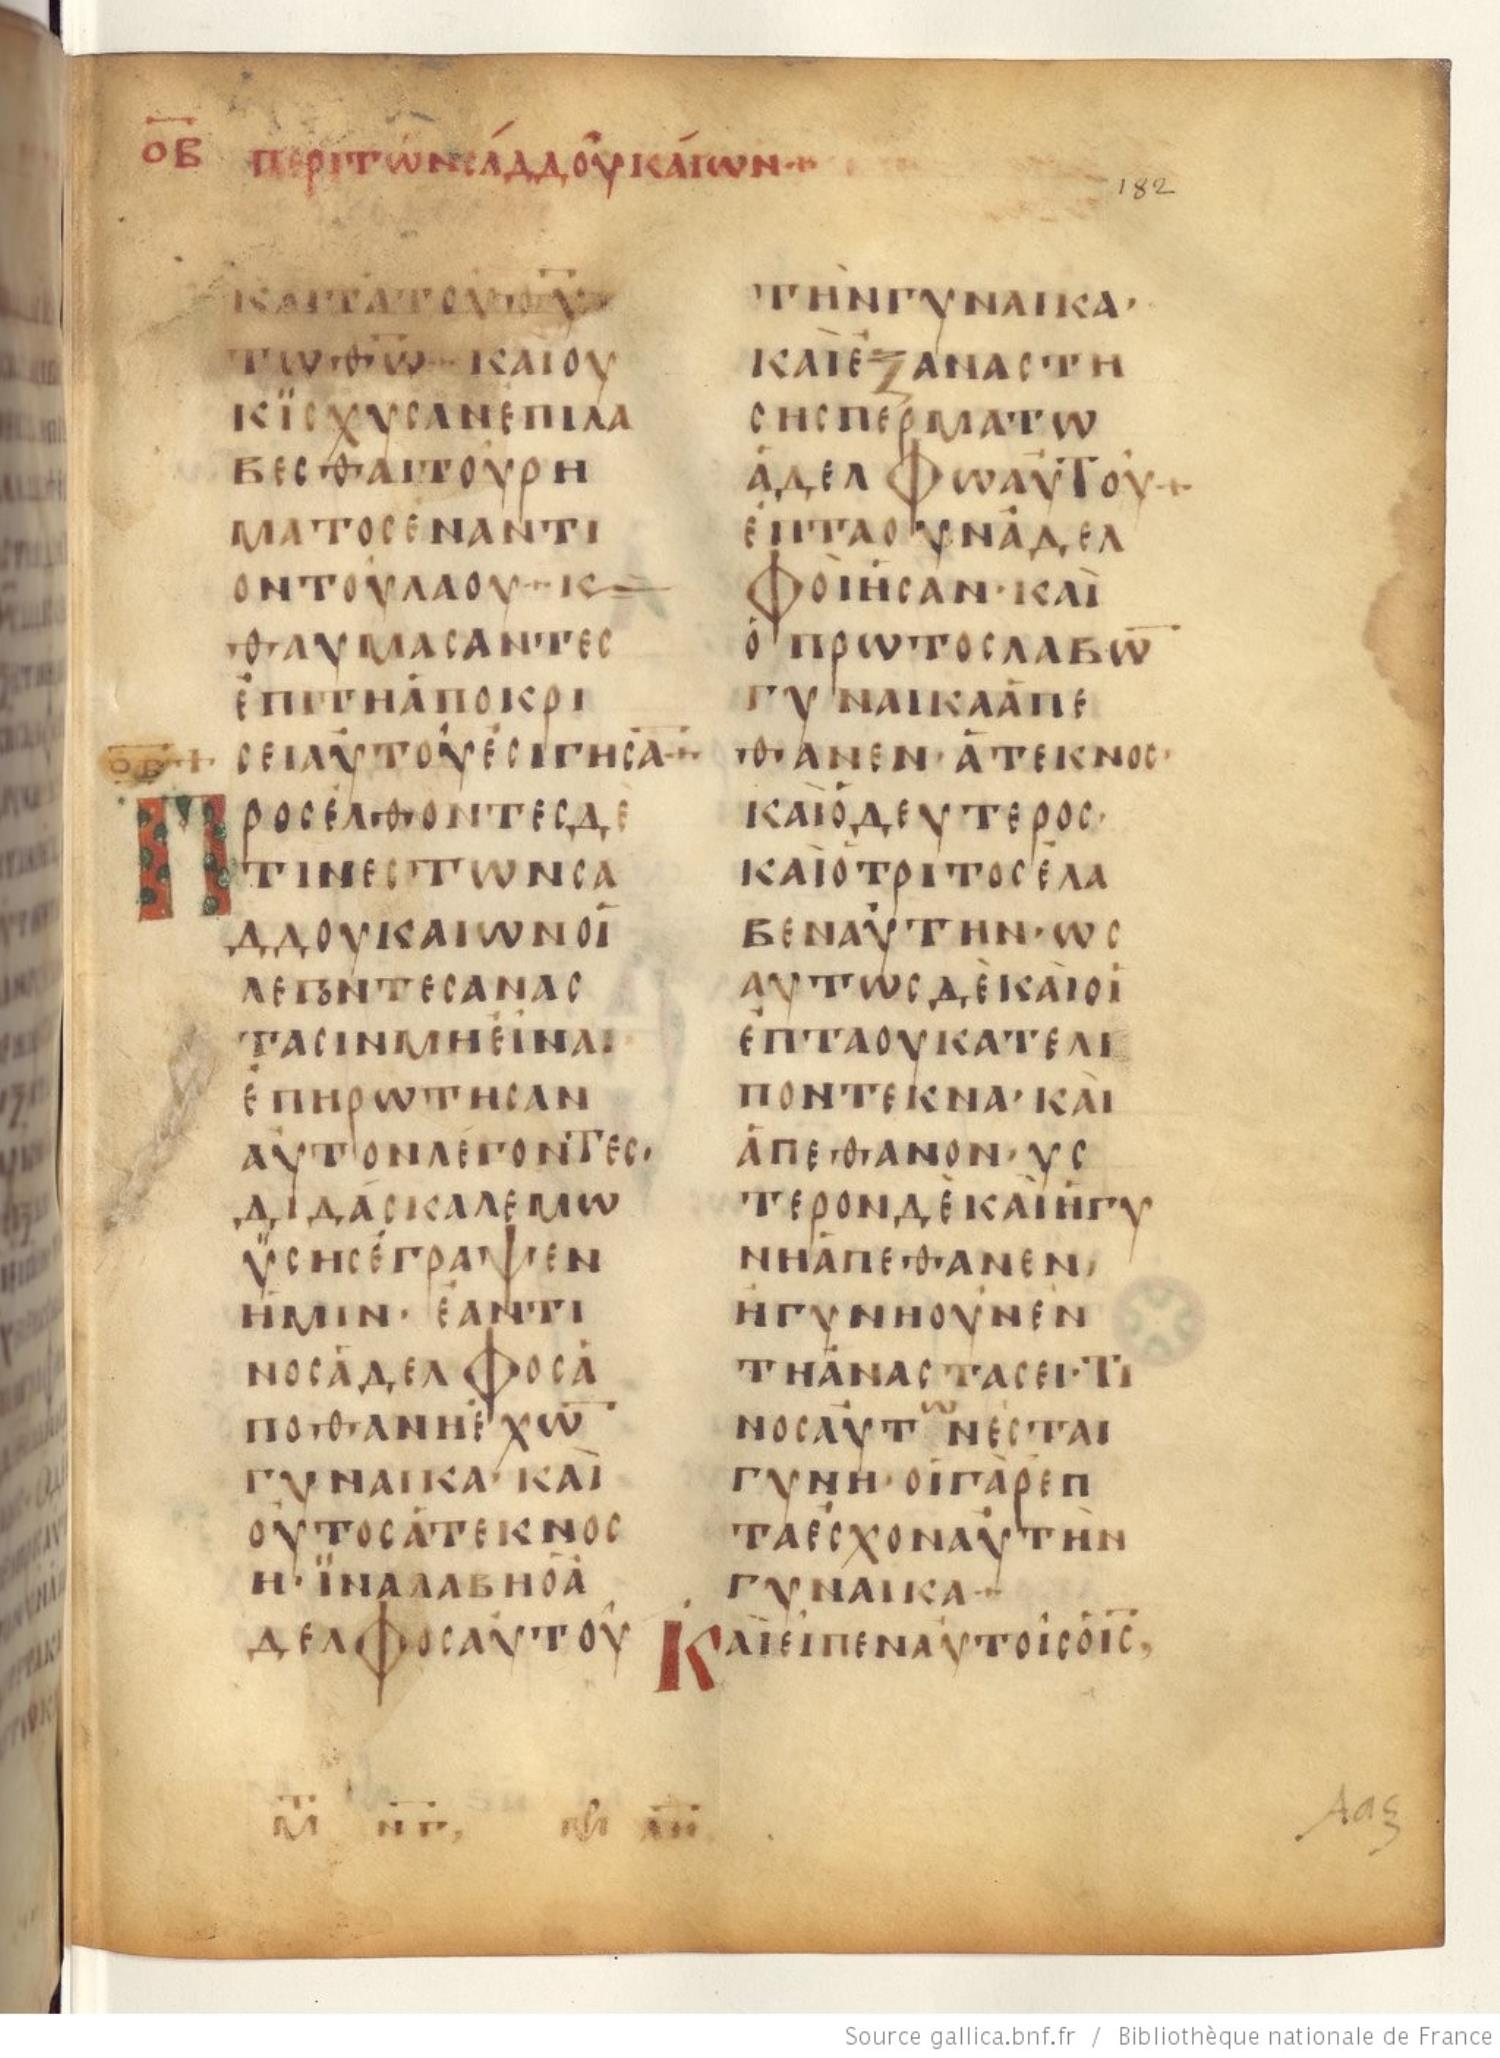 ΟΒ ΠΕΡΙΤΩΝΣΑΔΔΟΥΚΑΙΩΝ
182
ΚΑΙΤΑΤΟΥΘΥ
ΤΩΘΩ ΚΑΙΟΥ
ΚΪΣΧΥΣΑΝΕΠΙΛΑ
ΒΕΣΘΑΙΤΟΥΡΗ
ΜΑΤΟΣΕΝΑΝΤΙ
ΟΝΤΟΥΛΑΟΥ Κ
ΘΑΥΜΑΣΑΝΤΕΣ
ΕΠΙΤΗΑΠΟΚΡΙ
ΟΒ ΣΕΙΑΥΤΟΥΕΣΙΓΗΣΑ
ΠΡΟΣΕΛΘΟΝΤΕΣΔΕ
ΤΙΝΕΣΤΩΝΣΑ
ΔΔΟΥΚΑΙΩΝΟΙ
ΛΕΓΟΝΤΕΣΑΝΑΣ
ΤΑΣΙΝΜΗΕΙΝΑΙ
ΕΠΗΡΩΤΗΣΑΝ
ΑΥΤΟΝΛΕΓΟΝΤΕΣ·
ΔΙΔΑΣΚΑΛΕΜΩ
ΫΣΗΣΕΓΡΑΨΕΝ
ΗΜΙΝ· ΕΑΝΤΙ
ΝΟΣΑΔΕΛΦΟΣΑ
ΠΟΘΑΝΗΕΧΩ̅
ΓΥΝΑΙΚΑ· ΚΑΙ
ΟΥΤΟΣΑΤΕΚΝΟΣ
Η· ΪΝΑΛΑΒΗΟΑ
ΔΕΛΦΟΣΑΥΤΟΥ
ΤΗΝΓΥΝΑΙΚΑ·
ΚΑΙΕΞΑΝΑΣΤΗ
ΣΗΣΠΕΡΜΑΤΩ
ΑΔΕΛΦΩΑΥΤΟΥ
ΕΠΤΑΟΥΝΑΔΕΛ
ΦΟΙΗΣΑΝ· ΚΑΙ
ΟΠΡΩΤΟΣΛΑΒΩ̅
ΓΥΝΑΙΚΑΑΠΕ
ΘΑΝΕΝ· ΑΤΕΚΝΟΣ·
ΚΑΙΟΔΕΥΤΕΡΟΣ·
ΚΑΙΟΤΡΙΤΟΣΕΛΑ
ΒΕΝΑΥΤΗΝ· ΩΣ
ΑΥΤΩΣΔΕΚΑΙΟΙ
ΕΠΤΑΟΥΚΑΤΕΛΙ
ΠΟΝΤΕΚΝΑ· ΚΑΙ
ΑΠΕΘΑΝΟΝ· ΥΣ
ΤΕΡΟΝΔΕΚΑΙΗΓΥ
ΝΗΑΠΕΘΑΝΕΝ,
ΗΓΥΝΗΟΥΝΕΝ
ΤΗΑΝΑΣΤΑΣΕΙ· ΤΙ
ΝΟΣΑΥΤΩΝΕΣΤΑΙ
ΓΥΝΗ· ΟΙΓΑΡΕΠ
ΤΑΕΣΧΟΝΑΥΤΗΝ
ΓΥΝΑΙΚΑ
ΚΑΙΕΙΠΕΝΑΥΤΟΙΣΟΙΣ,
Source gallica.bnf.fr / Bibliothèque nationale de France